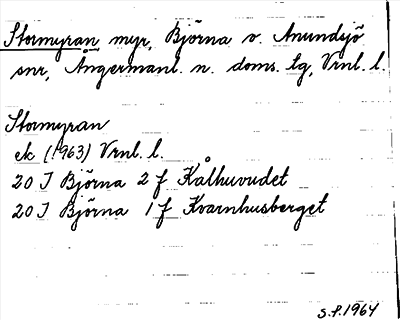 Stormyran myr, Björna o. Anundsjö
snr, Ångermanl. n. doms. lg, Vrnl. l.
Stormyran
ek (1963) Vrnl. l.
20 J Björna 2 f Kålhuvudet
20 J Björna 1 f Kvarnhusberget
S.F. 1964